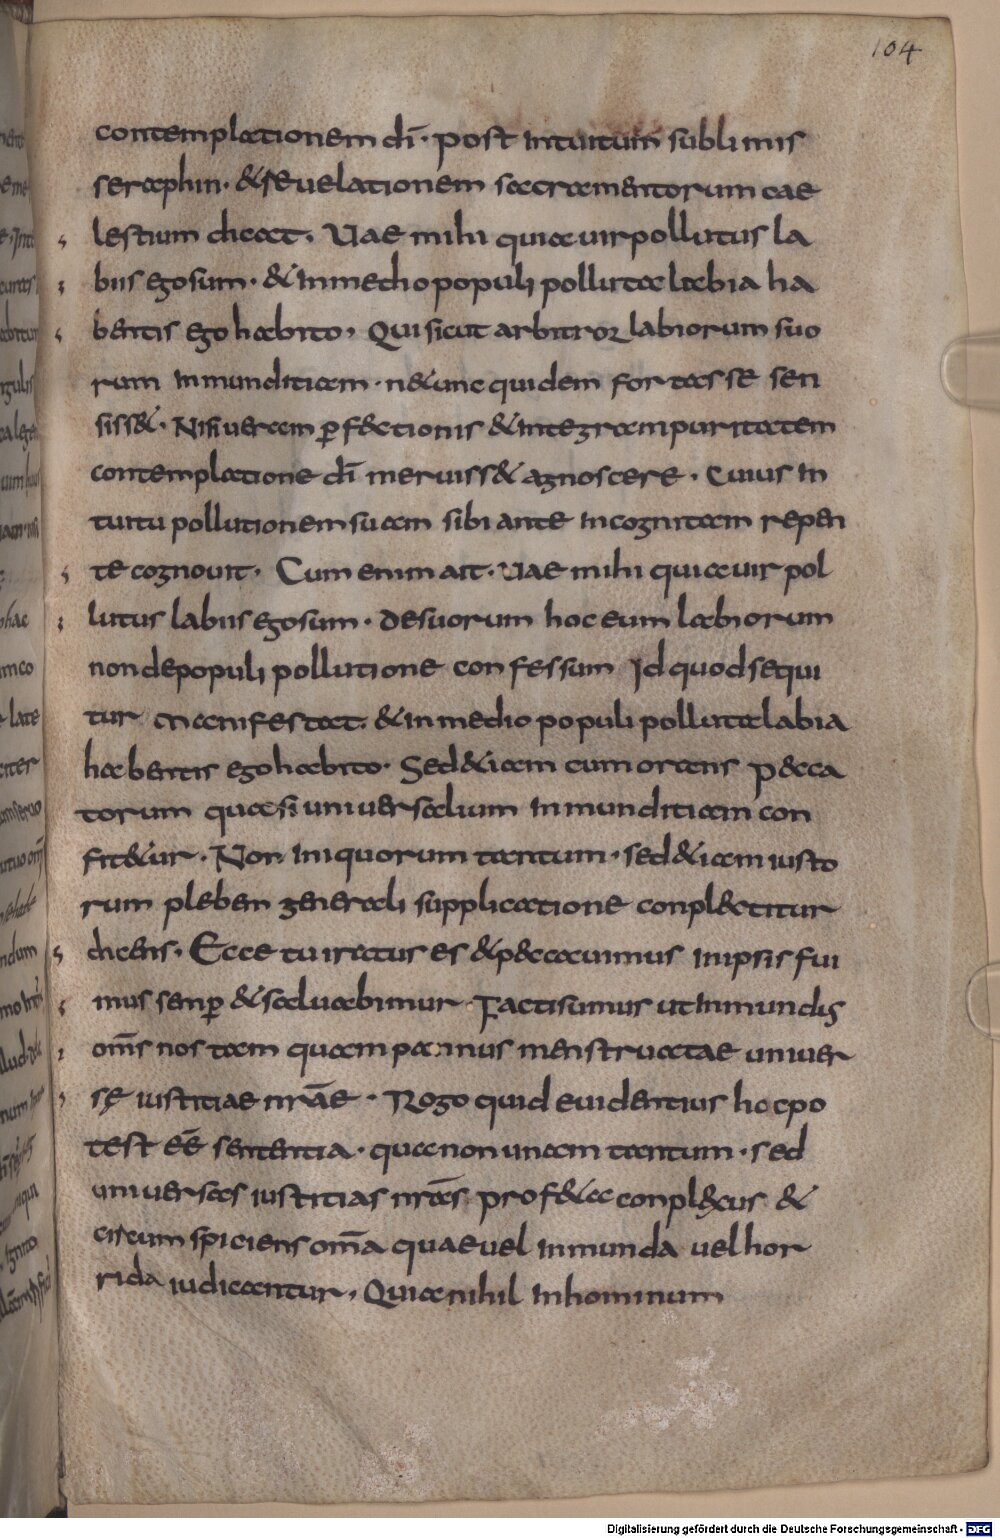 104
contemplationem dī · post intuitum sublimis
seraphin · & reuelationem sacramentorum cae
lestium dicat . Uae mihi quia uir pollutus la
biis ego sum · & in medio populi polluta labia ha
bentis ego habito , Qui sicut arbitror labiorum suo
rum inmunditiam · n& unc quidem fortasse sen
siss& . Nisi ueram ꝑf&ctionis & integram puritatem
contemplatione dī meruiss& agnoscere . Cuius in
tuitu pollutionem suam sibi ante incognitam repen
te cognouit . Cum enim ait . uae mihi quia uir pol
lutus labiis ego sum · de suorum hoc eum labiorum
non de populi pollutione confessum id quod sequi
tur manifestat . & in medio populi polluta labia
habentis ego habito . Sed &iam cum orans p&cca
torum quasi uniuersalium inmunditiam con
fit&ur . Non iniquorum tantum · sed &iam iusto
rum plebem generali supplicatione conpl&ctitur
dicens . Ecce tu iratus es & peccauimus in ipsis fui
mus semꝑ & saluabimur · Facti sumus ut inmundi
om̄s nos tam quam pannus menstruatae uniuer
sę iustitiae nr̄ae . Rogo quid euidentius hoc po
test eē sententia · quae non unam tantum · sed
uniuersas iustitias nr̄as prof&a conpl&xus &
circumspiciens om̄a quae uel inmunda uel hor
rida iudicantur , Quia nihil in hominum
Digitalisierung gefördert durch die Deutsche Forschungsgemeinschaft - DFG